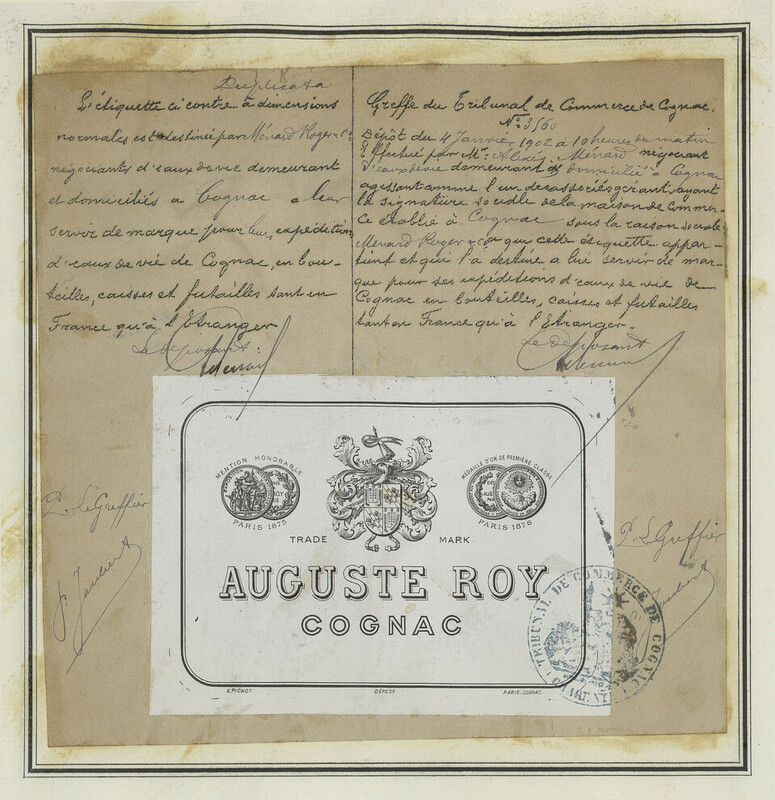 Duplicata
L'étiquette ci contre à dimensions
normales, est destinée par Ménard Roger & Cº
négociants d'eaux de vie demeurant
et domiciliés à Cognac à leur
servir de marque pour leurs expéditions
d'eaux de vie de Cognac, en bou-
teilles, caisses et futailles tant en
France qu'à l'Etranger
Le déposant:
Ménard
P. Le Greffier
Greffe du Tribunal de Commerce de Cognac.
Nº 3560
Dépôt du 4 Janvier 1902 à 10 heures du matin
Effectué par Mr. Alexis Ménard négociant
d'eaux de vie demeurant et domicilié à Cognac
agissant comme l'un des associés gérant, ayant
la signature sociale de la maison de commer-
ce établie à Cognac sous la raison sociale
Ménard Roger & Cº à qui cette étiquette appar-
tient et qui l'a destine a lui servir de mar-
que pour ses expéditions d'eaux de vie de
Cognac en bouteilles, caisses et futailles
tant en France qu'à l'Etranger.
Le déposant
Ménard
P. Le Greffier
MENTION HONORABLE
PARIS 1875
MÉDAILLE D'OR DE PREMIÈRE CLASSE
PARIS 1876
TRADE MARK
AUGUSTE ROY
COGNAC
E. PICHOT
DÉPOSÉ
PARIS. COGNAC
TRIBUNAL DE COMMERCE DE COGNAC
(CHARENTE)